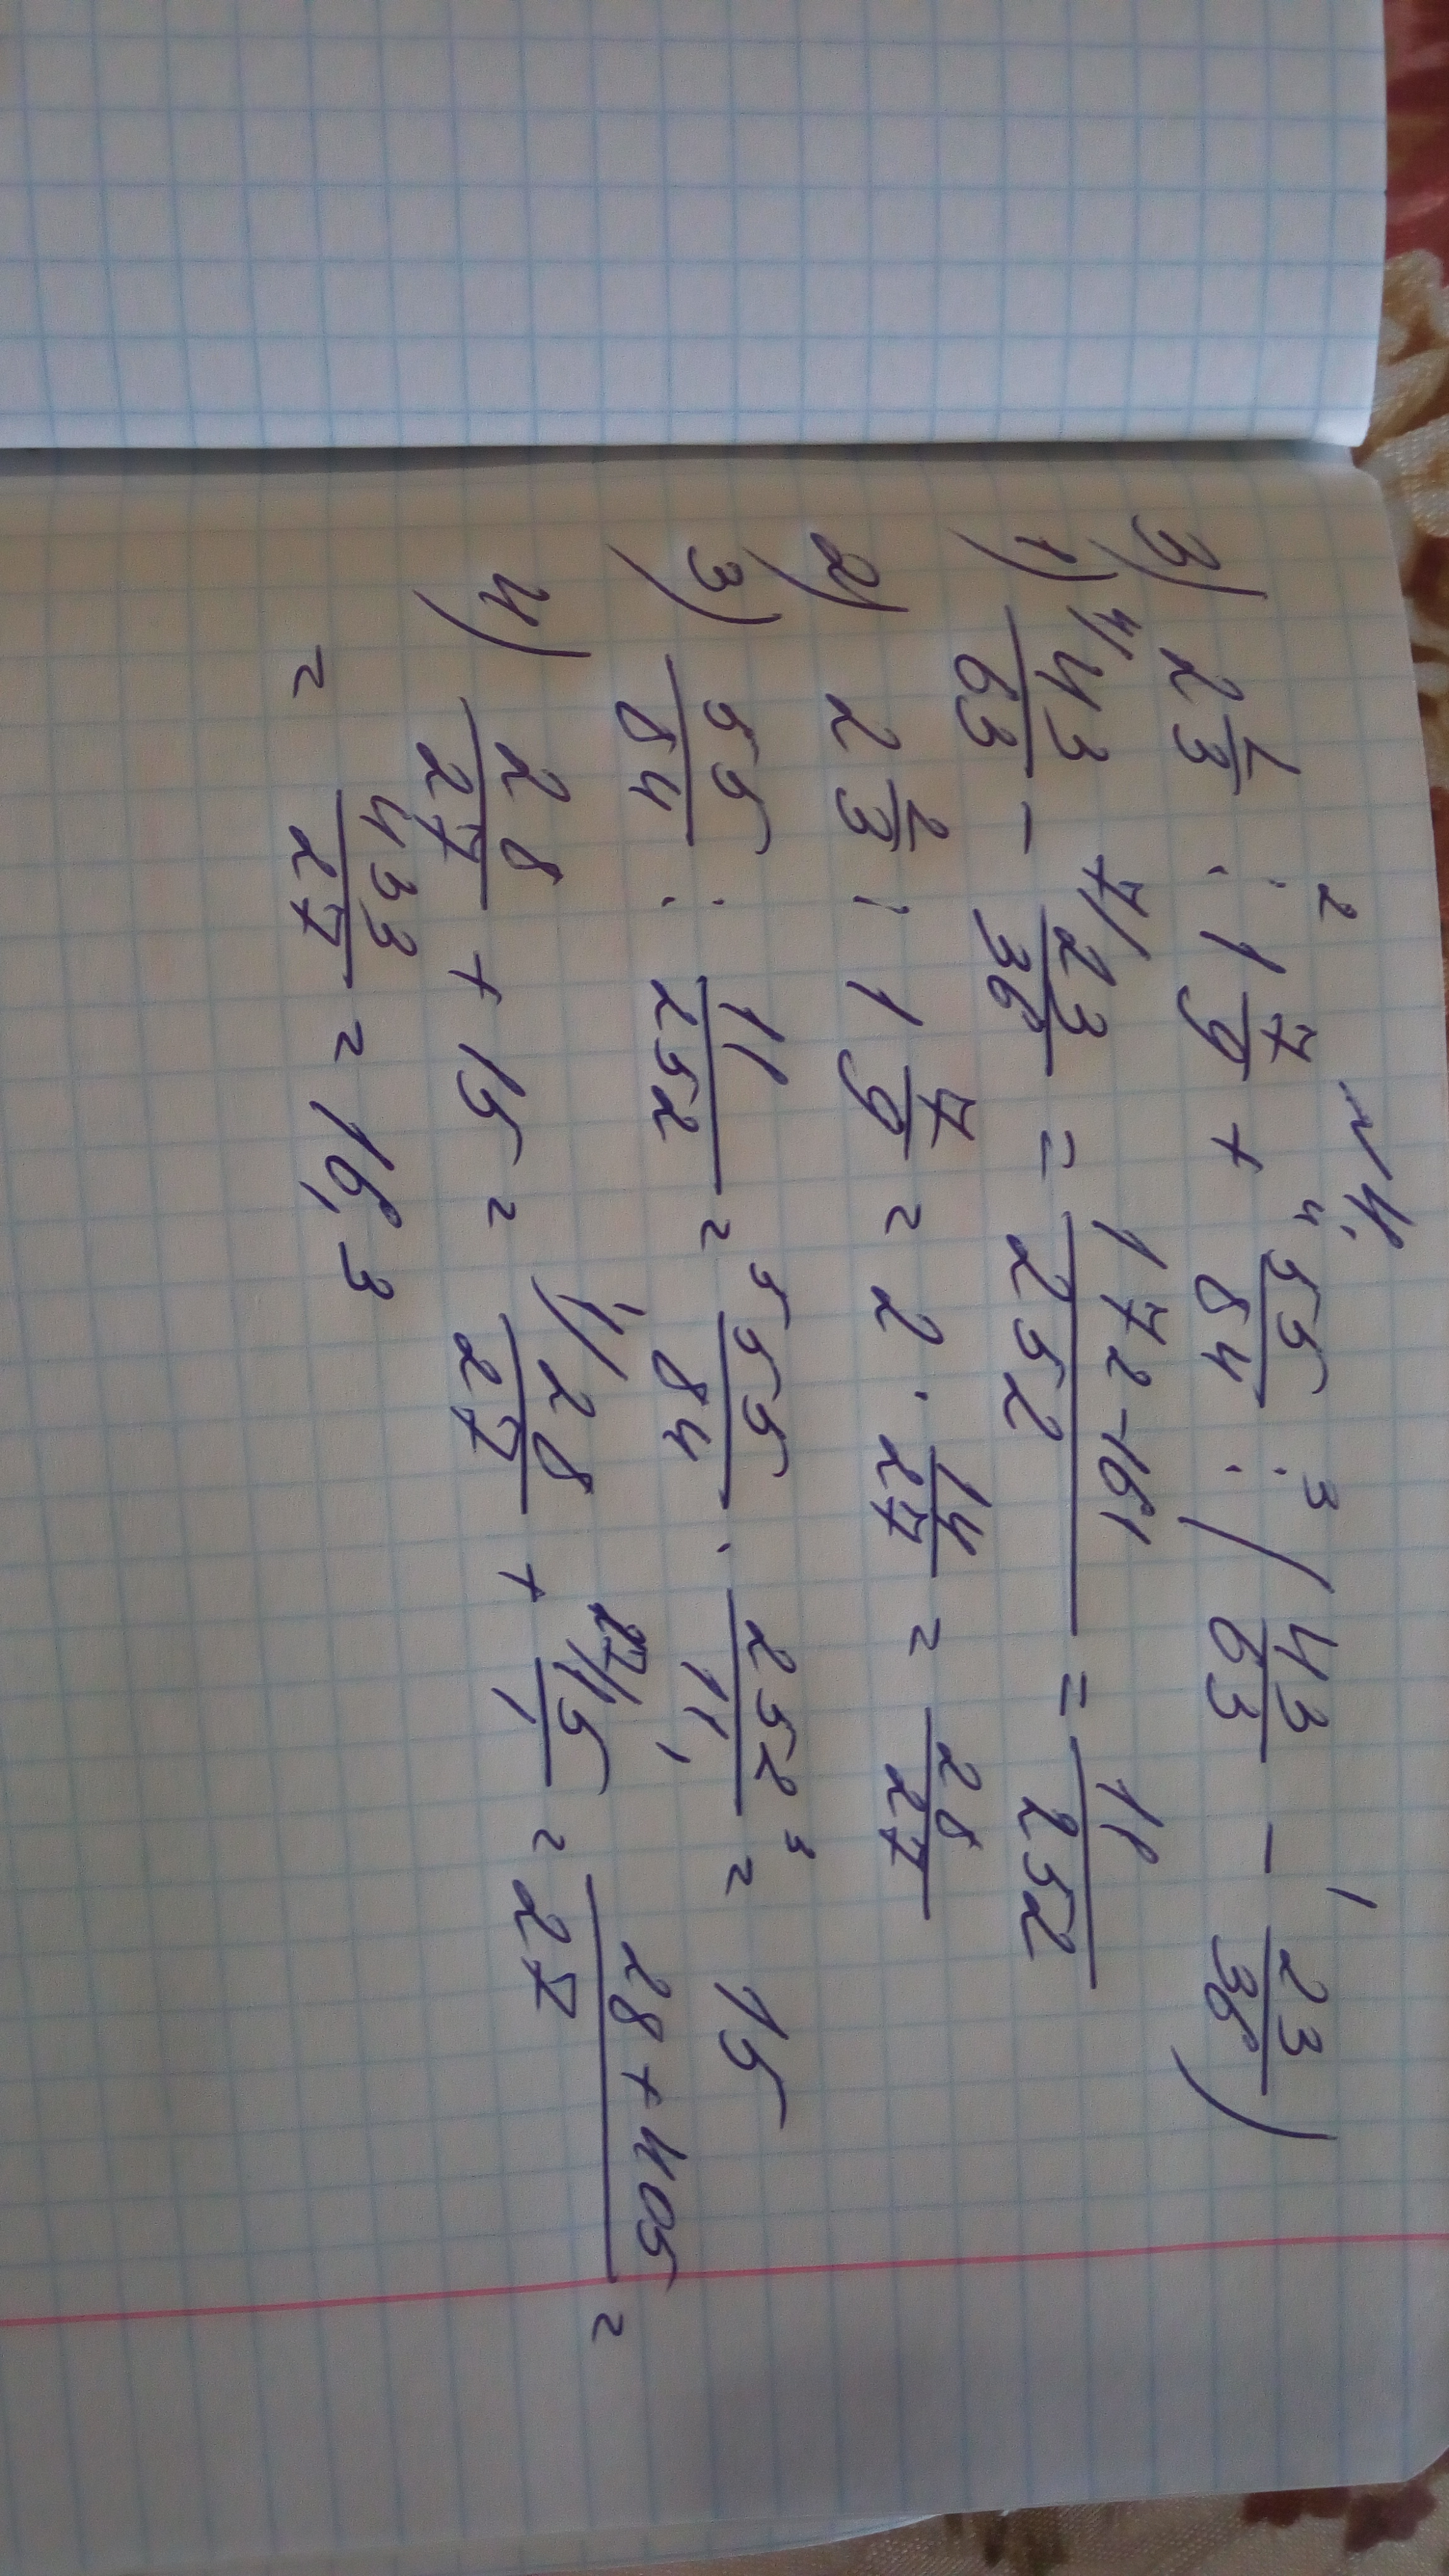 №4.
2 4 3 1
3) 2 2/3 : 1 7/9 + 55/84 : (43/63 - 23/36)
1) 4/ 43/63 - 7/ 23/36 = 172-161/252 = 11/252
2) 2 2/3 : 1 7/9 = 2 · 14/27 = 28/27
3) 55/84 : 11/252 = 5 55/84 · 252/11 3 1 = 15
4) 28/27 + 15 = 1/ 28/27 + 27/ 15/1 = 28+405/27 =
= 433/27 = 16,3